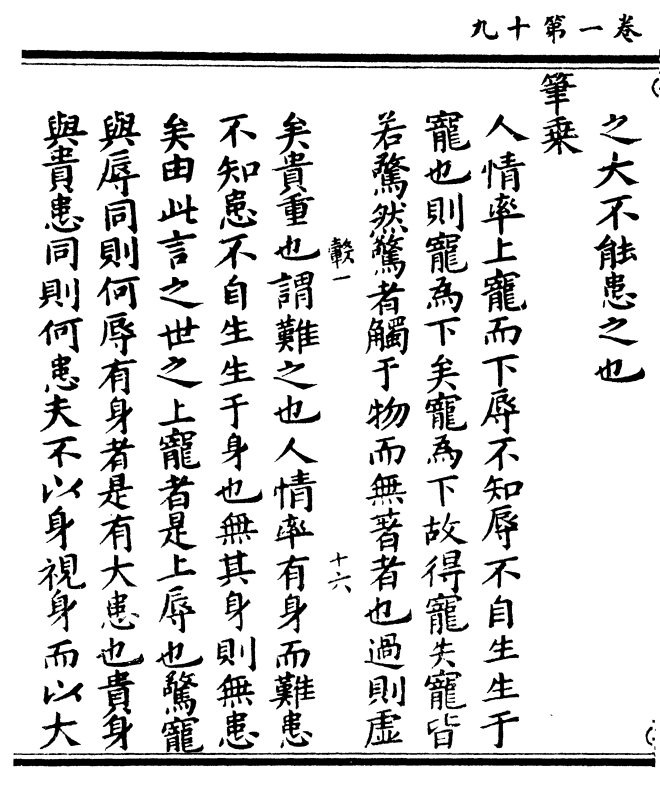 卷一第十九
之大不能患之也
筆乗
人情率上寵而下辱不知辱不自生生于
寵也則寵為下矣寵為下故得寵失寵皆
若驚然驚者觸于物而無著者也過則虛
十六
矣貴重也謂難之也人情率有身而難患
不知患不自生生于身也無其身則無患
矣由此言之世之上寵者是上辱也驚寵
與辱同則何辱有身者是有大患也貴身
與貴患同則何患夫不以身視身而以大